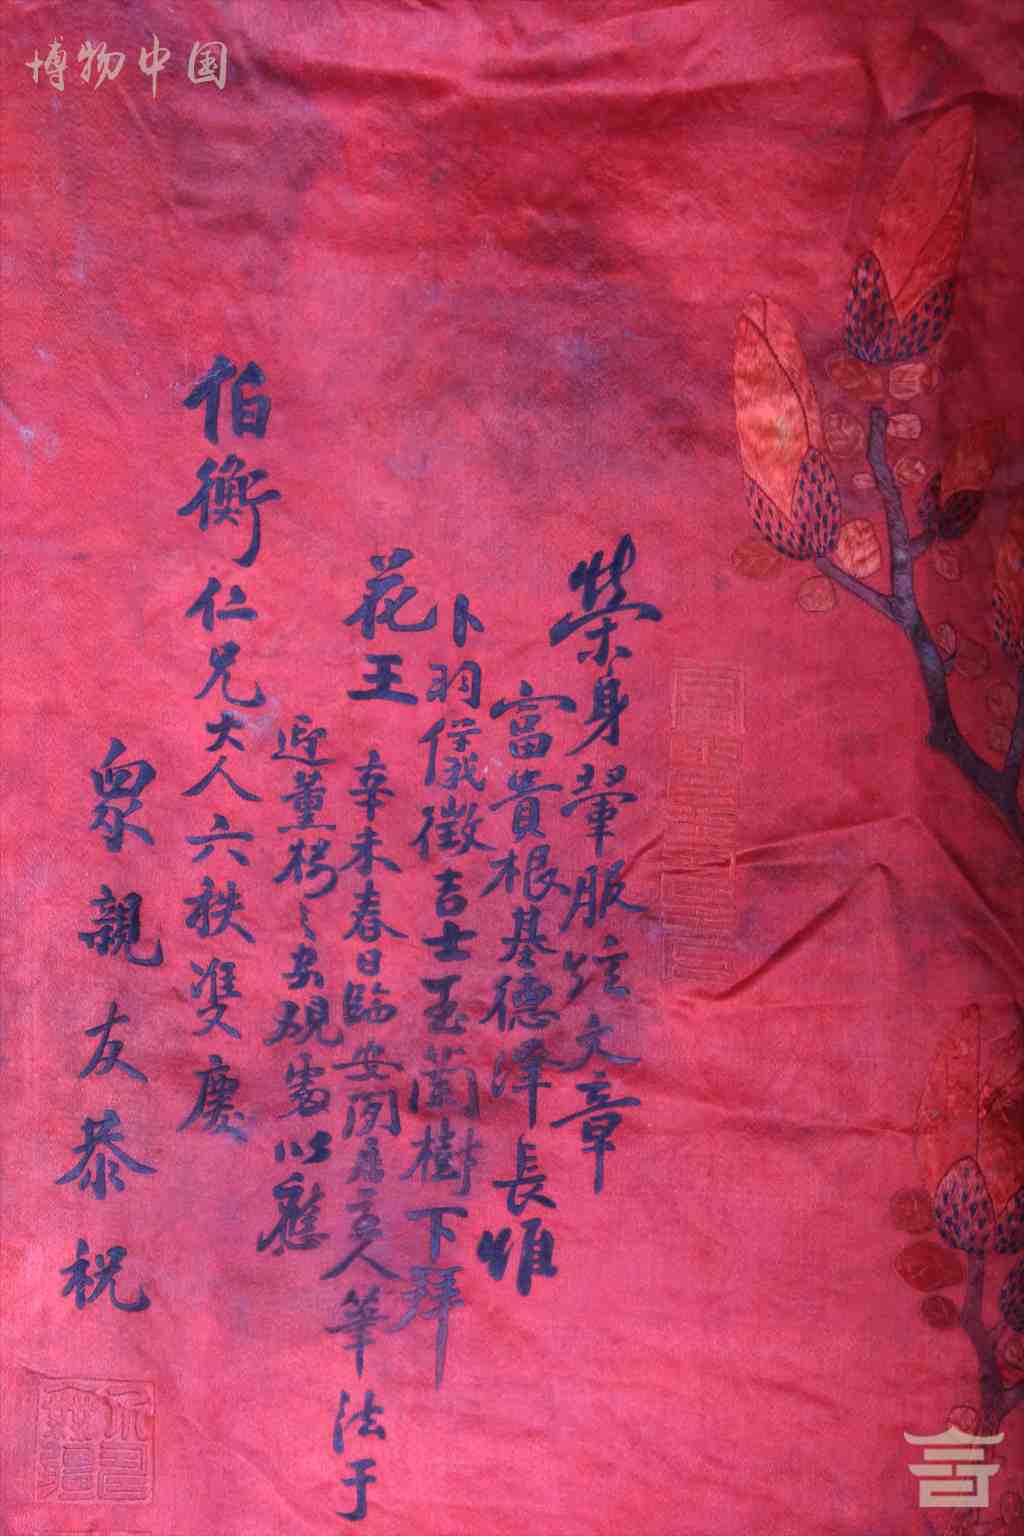 博物中国
榮身翬服炫文章
富貴根基德澤長惟
卜羽儀徵吉士玉蘭樹下拜
花王 辛未春日臨安閑居主人筆法于
迎之安硯處以應
伯衡仁兄大人六秩雙慶
眾親友恭祝
介眉
無疆